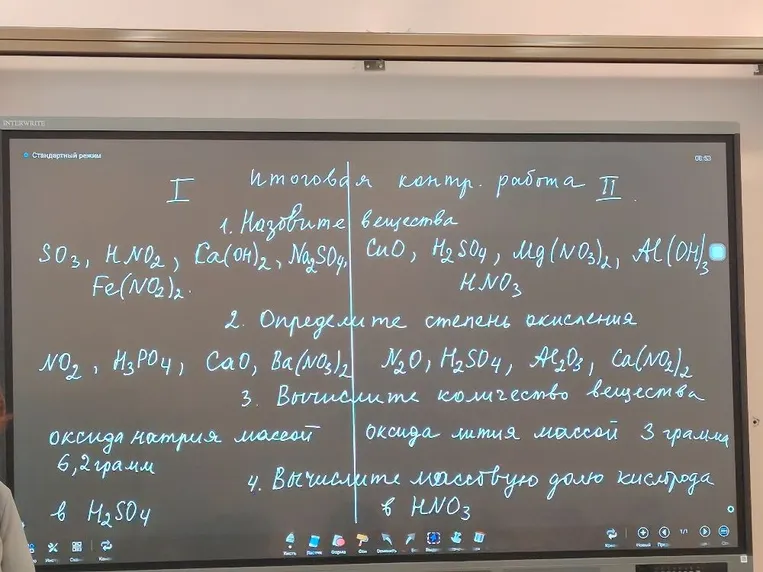 INTERWRITE
Стандартный режим 08:53
I Итоговая контр. работа II
1. Назовите вещества
SO3, HNO2, Ca(OH)2, Na2SO4, CuO, H2SO4, Mg(NO3)2, Al(OH)3
Fe(NO2)2. HNO3
2. Определите степень окисления
NO2, H3PO4, CaO, Ba(NO3)2 N2O, H2SO4, Al2O3, Ca(NO2)2
3. Вычислите количество вещества
оксида натрия массой оксида лития массой 3 грамма
6,2 грамм
4. Вычислите массовую долю кислорода
в H2SO4 в HNO3
1/1